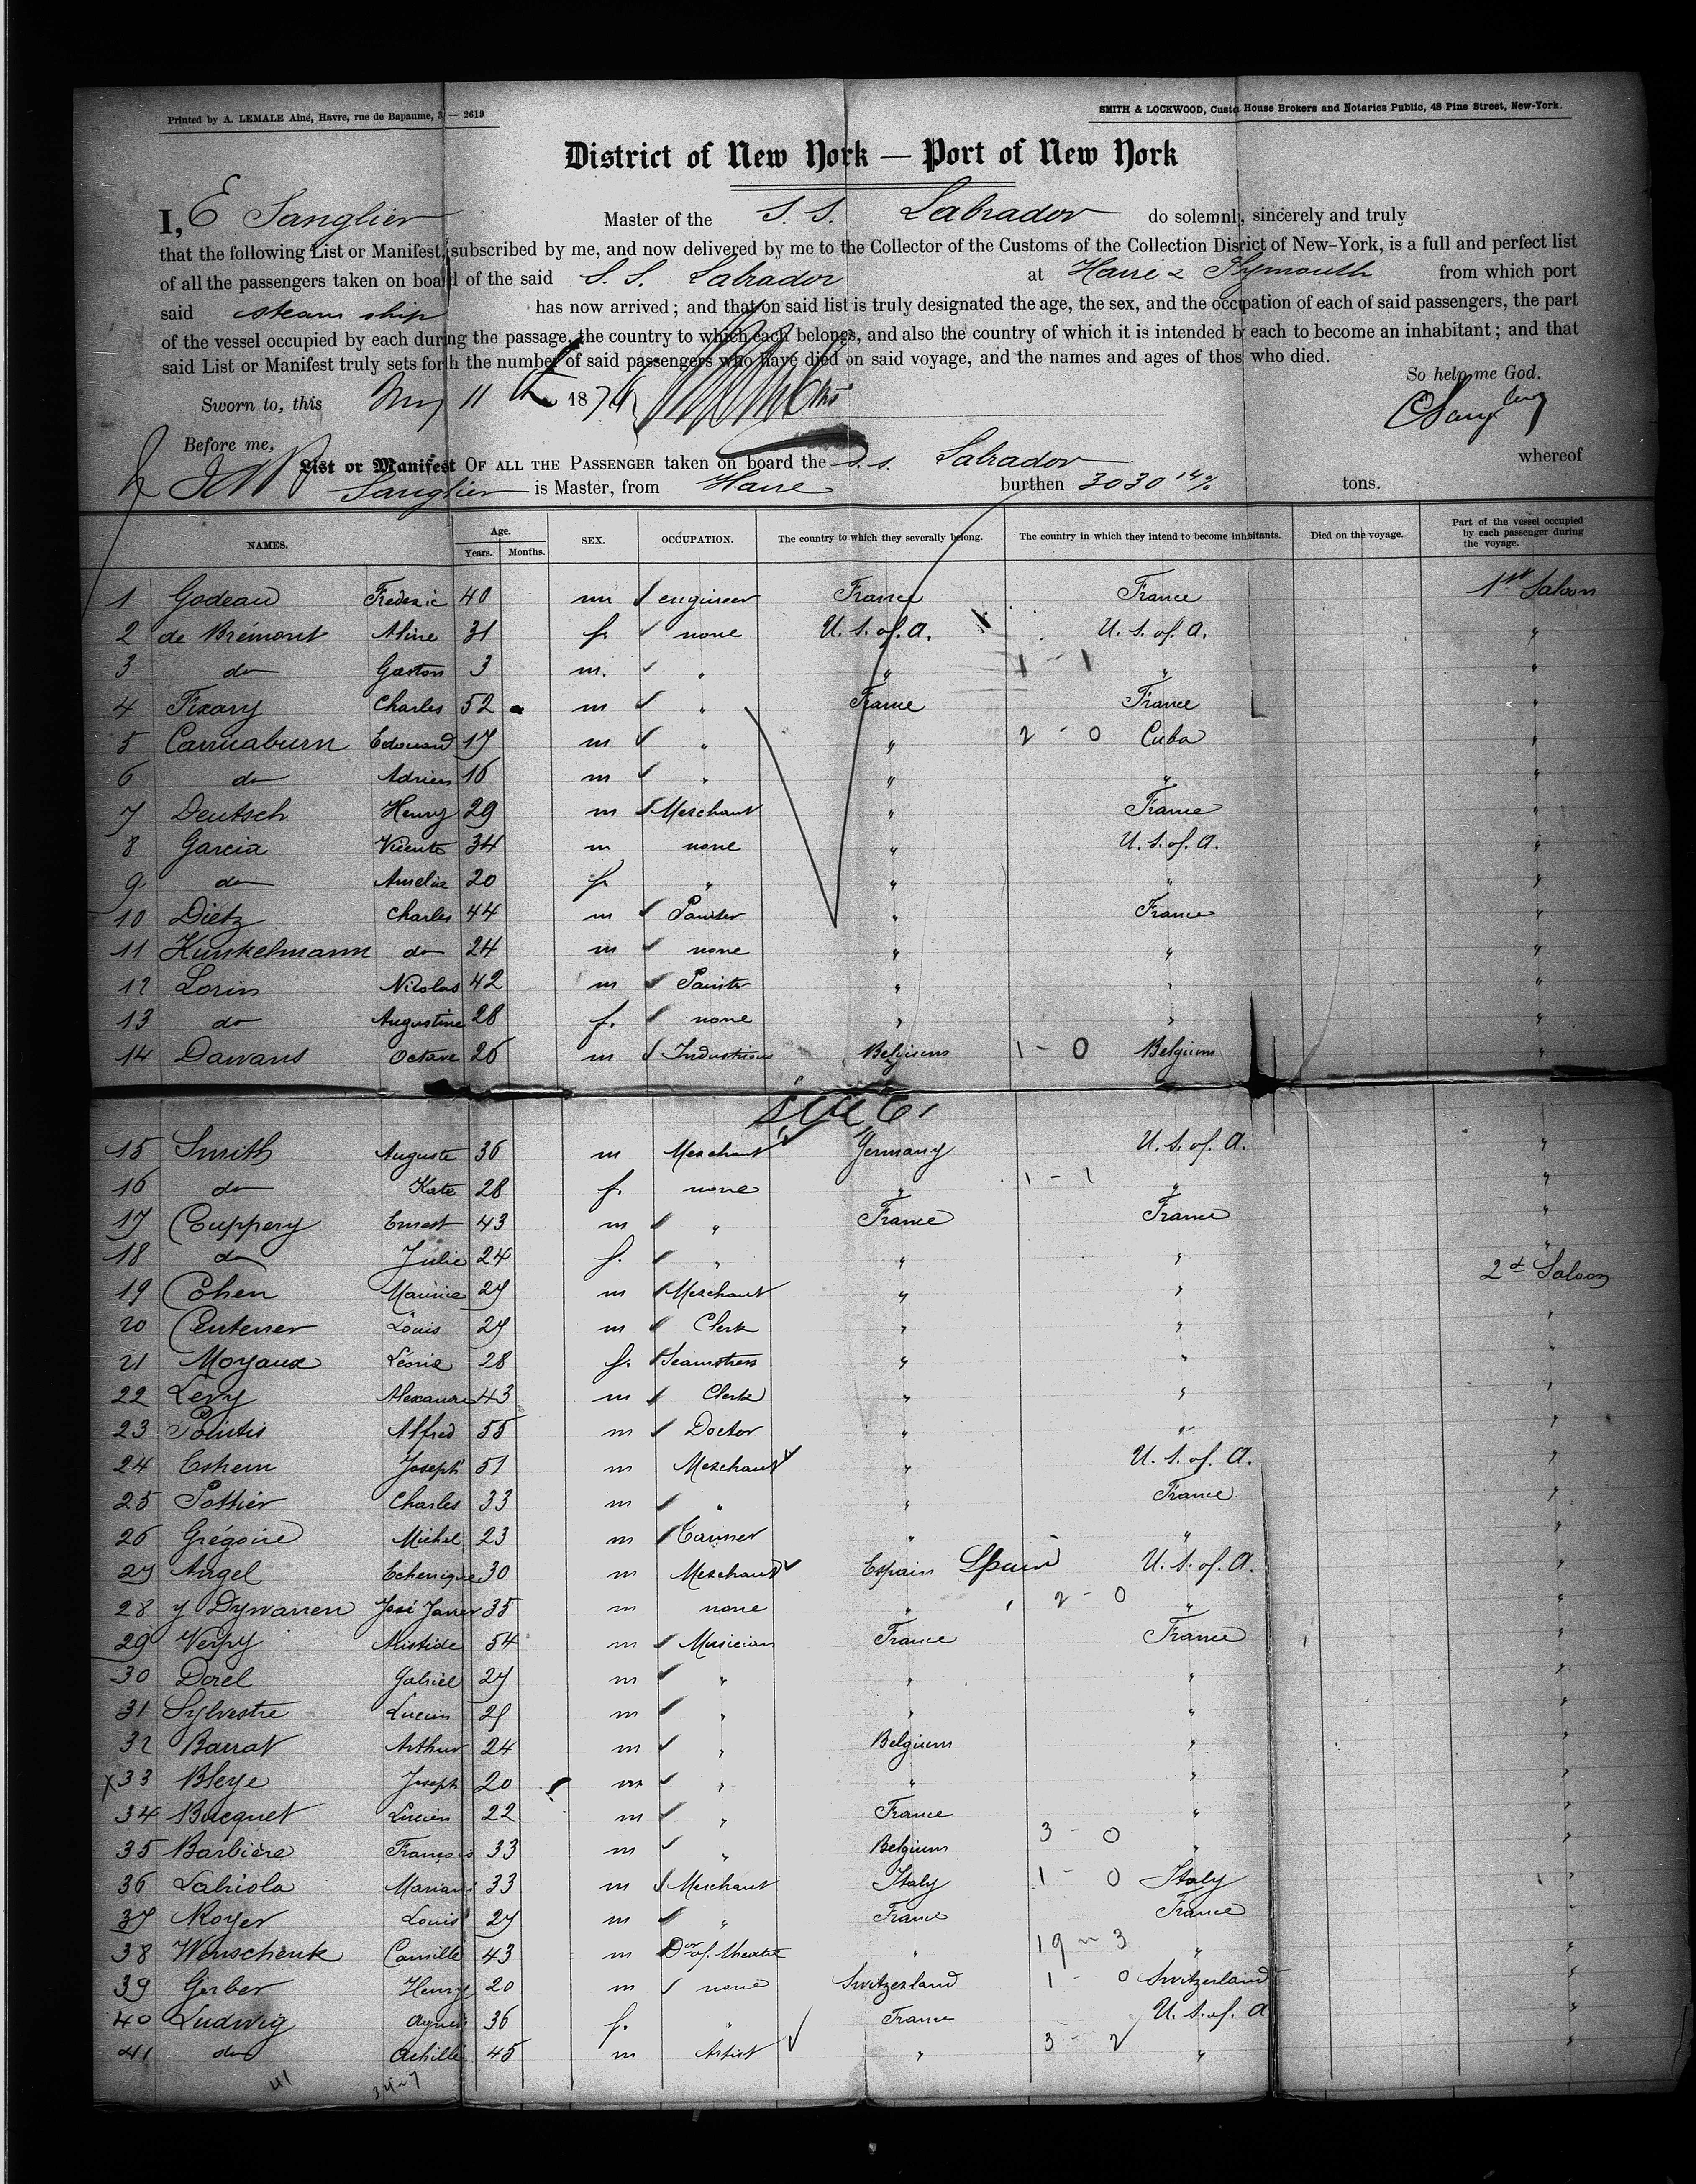 Printed by A. LEMALE Aîné, Havre, rue de Bapaume, 3 — 2619
SMITH & LOCKWOOD, Custo House Brokers and Notaries Public, 48 Pine Street, New-York.
District of New York — Port of New York
I, E Sanglier Master of the S. S. Labrador do solemnly, sincerely and truly
that the following List or Manifest, subscribed by me, and now delivered by me to the Collector of the Customs of the Collection District of New-York, is a full and perfect list
of all the passengers taken on board of the said S. S. Labrador at Havre & Plymouth from which port
said steam ship has now arrived; and that on said list is truly designated the age, the sex, and the occupation of each of said passengers, the part
of the vessel occupied by each during the passage, the country to which each belongs, and also the country of which it is intended by each to become an inhabitant; and that
said List or Manifest truly sets forth the number of said passengers who have died on said voyage, and the names and ages of those who died.
So help me God.
Sworn to, this 11 187
Before me,
List or Manifest OF ALL THE PASSENGER taken on board the S. S. Labrador whereof
Sanglier is Master, from Havre burthen 3030 14/% tons.
NAMES. Age. Years. Months. SEX. OCCUPATION. The country to which they severally belong. The country in which they intend to become inhabitants. Died on the voyage. Part of the vessel occupied by each passenger during the voyage.
1 Godeau Frederic 40 m engineer France France 1st Saloon
2 de Brémont Aline 31 f. none U. S. of. A. U. S. of. A. "
3 do Gaston 3 m. " " 1 - 1 " "
4 Fixary Charles 52 m " France France "
5 Edouard 17 m " " 2 - 0 Cuba "
6 do Adrien 16 m " " " "
7 Deutsch Henry 29 m Merchant " France "
8 Garcia Vicente 34 m none " U. S. of. A. "
9 do Amelia 20 f. " " " "
10 Dietz Charles 44 m Painter " France "
11 Kunkelmann do 24 m none " " "
12 Lorin Nicolas 42 m Painter " " "
13 do Augustine 28 f. none " " "
14 Dawans Octave 26 m Belgium 1 - 0 Belgium "
15 Smith Auguste 36 m Merchant Germany U. S. of. A. "
16 do Kate 28 f. none " 1 - 1 " "
17 Cuppery Ernest 43 m " France France "
18 do Julie 24 f. " " " "
19 Cohen Maurice 27 m Merchant " " 2d Saloon
20 Centener Louis 27 m Clerk " " "
21 Moyaux Léonie 28 f. Seamstress " " "
22 Levy Alexandre 43 m Clerk " " "
23 Pointis Alfred 55 m Doctor " " "
24 Joseph 51 m Merchant " U. S. of. A. "
25 Pottier Charles 33 m " " France "
26 Grégoire Michel 23 m Tanner " " "
27 Angel Echenique 30 m Merchant Espain Spain U. S. of. A. "
28 y José Javier 35 m none " 2 - 0 " "
29 Verpy Aristide 54 m Musician France France "
30 Dorel Gabriel 27 m " " " "
31 Sylvestre Lucien 29 m " " " "
32 Barrat Arthur 24 m " Belgium " "
x 33 Bleye Joseph 20 m " " " "
34 Bacquet Lucien 22 m " France " "
35 Barbière François 33 m " Belgium 3 - 0 " "
36 Labriola Mariani 33 m Merchant Italy 1 - 0 Italy "
37 Royer Louis 27 m " France France "
38 Weinschenk Camille 43 m Dor of. theatre " 19 - 3 " "
39 Gerber Henry 20 m none Switzerland 1 - 0 Switzerland "
40 Ludwig Agnes 36 f. " France U. S. of. A "
41 do Achille 45 m Artist " 3 - 2 " "
41
34 - 7